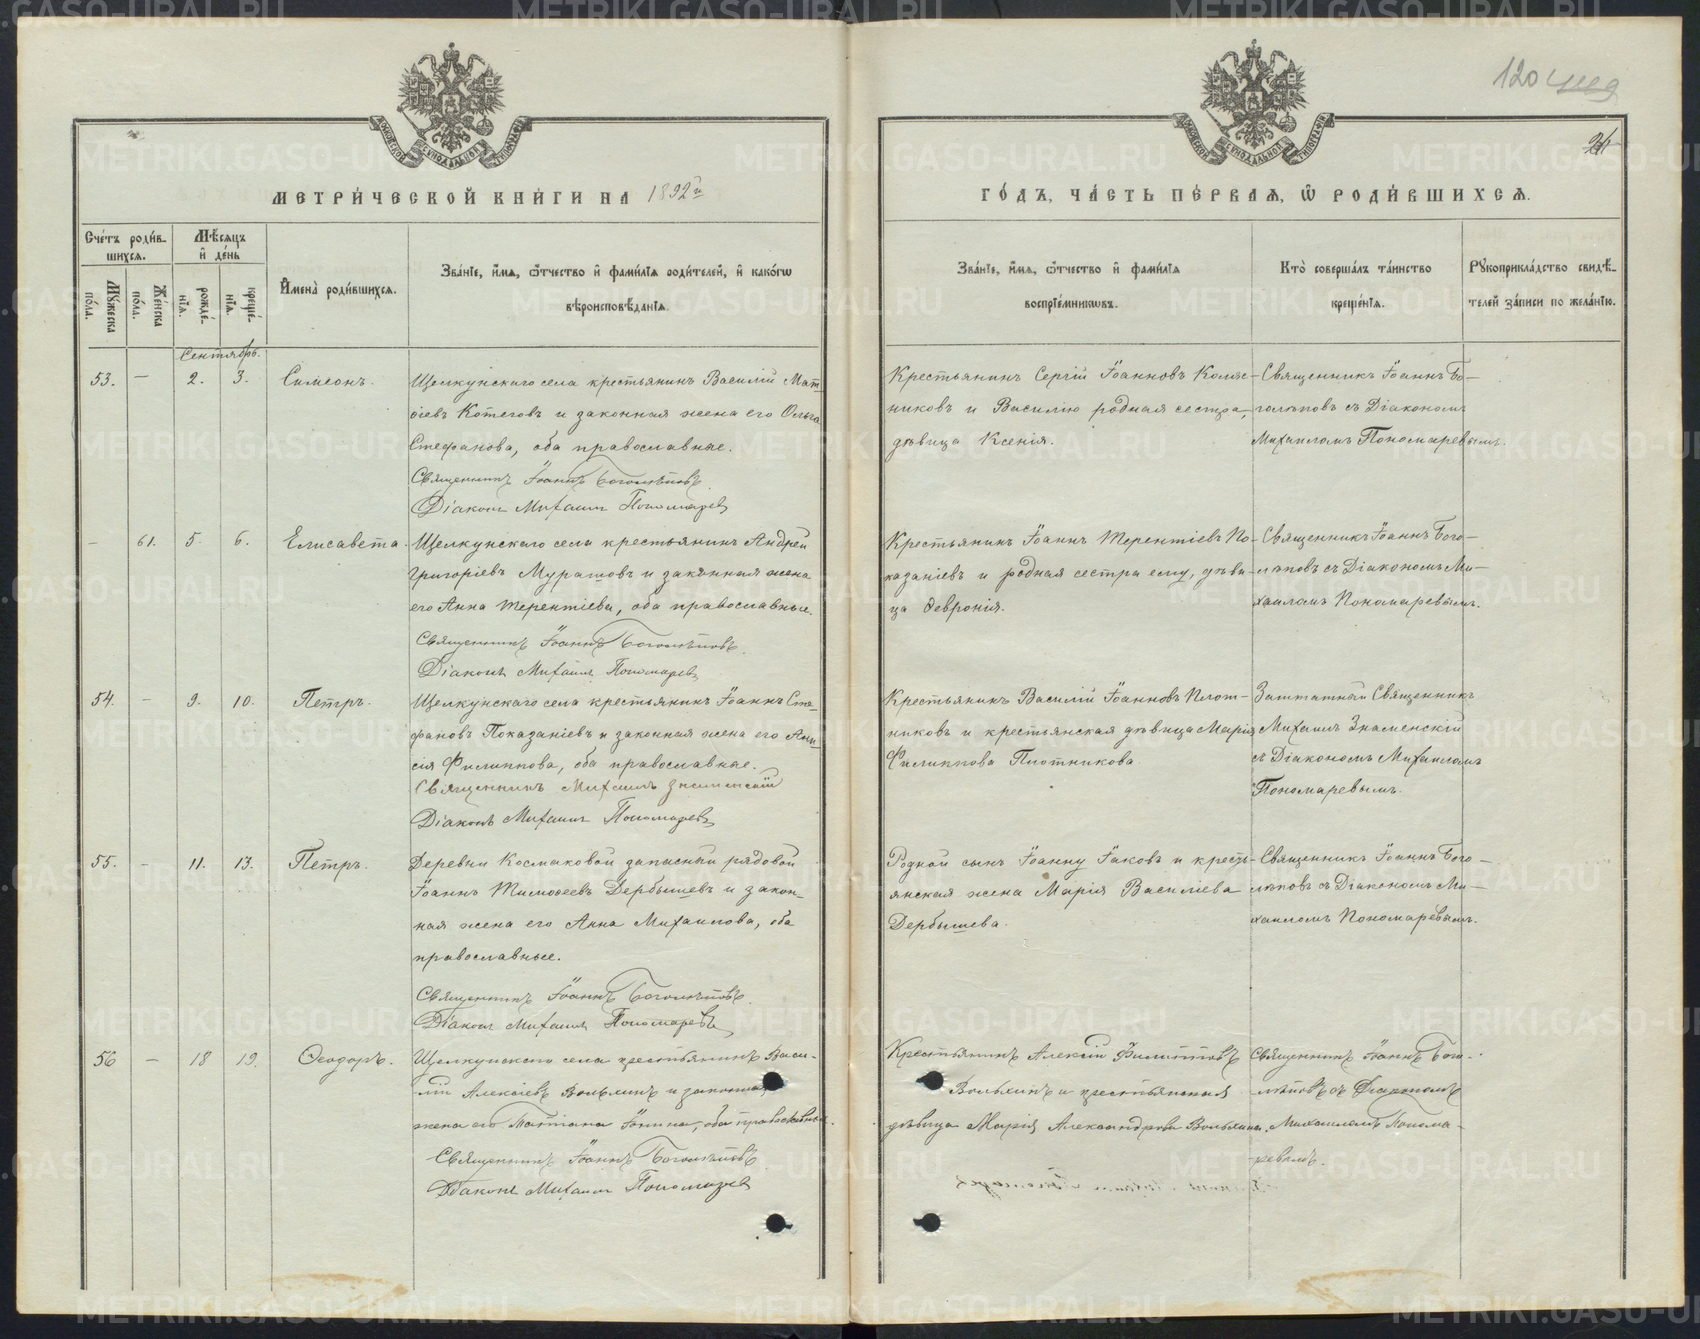 120
МОСКОВСКОЙ СУНОДАЛЬНОЙ ТИПОГРАФІИ
МОСКОВСКОЙ СУНОДАЛЬНОЙ ТИПОГРАФІИ
МЕТРИ́ЧЕСКОЙ КНИ́ГИ НА 1892й
ГО́ДЪ, ЧА́СТЬ ПЕ́РВАЯ, Ѡ РОДИ́ВШИХСЯ.
Сче́тъ роди́в-
шихся.
Мѣ́сяцъ
и́ де́нь
Му́жеска по́ла.
Же́нска по́ла.
рожде́нїя.
креще́нїя.
И҆мена̀ роди́вшихся.
Зва́нїе, и҆́мя, ѻ҆́тчество и҆ фами́лїя роди́телей, и҆ како́гѡ
вѣроисповѣ́данїя.
Зва́нїе, и҆́мя, ѻ҆́тчество и҆ фами́лїя
воспрїе́мникѡвъ.
Кто̀ соверша́лъ та́инство
креще́нїя.
Рꙋкоприкла́дство свидѣ́-
телей за́писи по жела́нїю.
Сентябрь.
53. — 2. 3. Симеонъ.
Щелкунскаго села крестьянинъ Василій Мат-
ѳіевъ Котеговъ и законная жена его Ольга
Стефанова, оба православные.
Священникъ Іоаннъ Боголѣповъ
Діаконъ Михаилъ Пономаревъ
Крестьянинъ Сергій Іоанновъ Коляс-
никовъ и Василію родная сестра,
дѣвица Ксенія.
Священникъ Іоаннъ Бо-
голѣповъ съ Діакономъ
Михаиломъ Пономаревымъ.
— 61. 5. 6. Елисавета.
Щелкунскаго села крестьянинъ Андрей
Григоріевъ Мурашовъ и законная жена
его Анна Терентіева, оба православные.
Священникъ Іоаннъ Боголѣповъ
Діаконъ Михаилъ Пономаревъ
Крестьянинъ Іоаннъ Терентіевъ По-
казаніевъ и родная сестра ему, дѣви-
ца Февронія.
Священникъ Іоаннъ Бого-
лѣповъ съ Діакономъ Ми-
хаиломъ Пономаревымъ.
54. — 9. 10. Петръ.
Щелкунскаго села крестьянинъ Іоаннъ Сте-
фановъ Показаніевъ и законная жена его Ани-
сія Филиппова, оба православные.
Священникъ Михаилъ Знаменскій
Діаконъ Михаилъ Пономаревъ
Крестьянинъ Василій Іоанновъ Плот-
никовъ и крестьянская дѣвица Марія
Филиппова Плотникова
Заштатный Священникъ
Михаилъ Знаменскій
съ Діакономъ Михаиломъ
Пономаревымъ.
55. — 11. 13. Петръ.
Деревни Космаковой запасный рядовой
Іоаннъ Тимоѳеевъ Дербышевъ и закон-
ная жена его Анна Михаилова, оба
православные.
Священникъ Іоаннъ Боголѣповъ
Діаконъ Михаилъ Пономаревъ
Родной сынъ Іоанну Іаковъ и кресть-
янская жена Марія Василіева
Дербышева.
Священникъ Іоаннъ Бого-
лѣповъ съ Діакономъ Ми-
хаиломъ Пономаревымъ.
56 — 18 19. Ѳеодоръ.
Щелкунскаго села крестьянинъ Васи-
лій Алексіевъ Вольхинъ и законная
жена его Татіана Іонина, оба православные.
Священникъ Іоаннъ Боголѣповъ
Діаконъ Михаилъ Пономаревъ
Крестьянинъ Алексій Филипповъ
Вольхинъ и крестьянская
дѣвица Марія Александрова Вольхина.
Священникъ Іоаннъ Бого-
лѣповъ съ Діакономъ
Михаиломъ Понома-
ревымъ.
METRIKI.GASO-URAL.RU